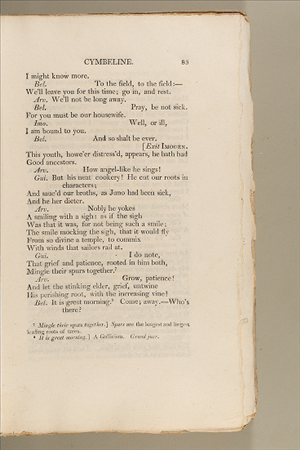 CYMBELINE. 83
I might know more.
Bel. To the field, to the field:—
We'll leave you for this time; go in, and rest.
Arv. We'll not be long away.
Bel. Pray, be not sick,
For you must be our housewife.
Imo. Well, or ill,
I am bound to you.
Bel. And so shalt be ever.
[Exit Imogen.
This youth, howe'er distress'd, appears, he hath had
Good ancestors.
Arv. How angel-like he sings!
Gui. But his neat cookery! He cut our roots in
characters;
And sauc'd our broths, as Juno had been sick,
And he her dieter.
Arv. Nobly he yokes
A smiling with a sigh: as if the sigh
Was that it was, for not being such a smile;
The smile mocking the sigh, that it would fly
From so divine a temple, to commix
With winds that sailors rail at.
Gui. I do note,
That grief and patience, rooted in him both,
Mingle their spurs together.⁷
Arv. Grow, patience!
And let the stinking elder, grief, untwine
His perishing root, with the increasing vine!
Bel. It is great morning.⁸ Come; away.—Who's
there?
⁷ Mingle their spurs together.] Spurs are the longest and largest
leading roots of trees.
⁸ It is great morning.] A Gallicism. Grand jour.